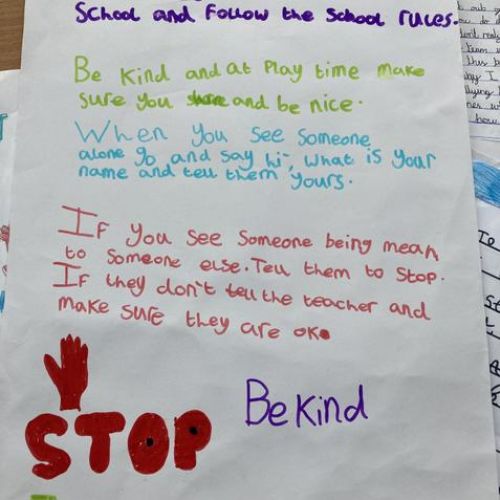 School and Follow the School rules.
Be Kind and at Play time make
sure you share and be nice.
When you see someone
alone go and say hi, what is your
name and tell them yours.
If you see someone being mean
to someone else. Tell them to stop.
If they don't tell the teacher and
make sure they are ok.
STOP
Be Kind